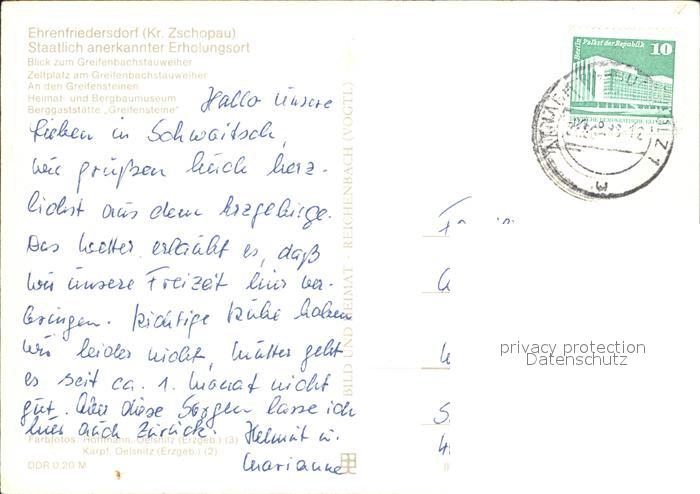 Ehrenfriedersdorf (Kr. Zschopau)
Staatlich anerkannter Erholungsort
Blick zum Greifenbachstauweiher
Zeltplatz am Greifenbachstauweiher
An den Greifensteinen
Heimat- und Bergbaumuseum
Berggaststätte „Greifensteine"
Hallo unsere
lieben in Schwaitsch,
wir grüßen Euch herz-
lichst aus dem Erzgebirge.
Das Wetter erlaubt es, daß
wir unsere Freizeit hier ver-
bringen. Richtige Ruhe haben
wir leider nicht, Mutter geht
es seit ca. 1. Monat nicht
gut. Aber diese Sorgen lasse ich
hier auch zurück. Helmut u.
Marianne
Farbfotos: Hoffmann, Oelsnitz (Erzgeb.) (3)
Karpf, Oelsnitz (Erzgeb.) (2)
DDR 0,20 M
BILD UND HEIMAT · REICHENBACH (VOGTL)
Berlin Palast der Republik
10
privacy protection
Datenschutz